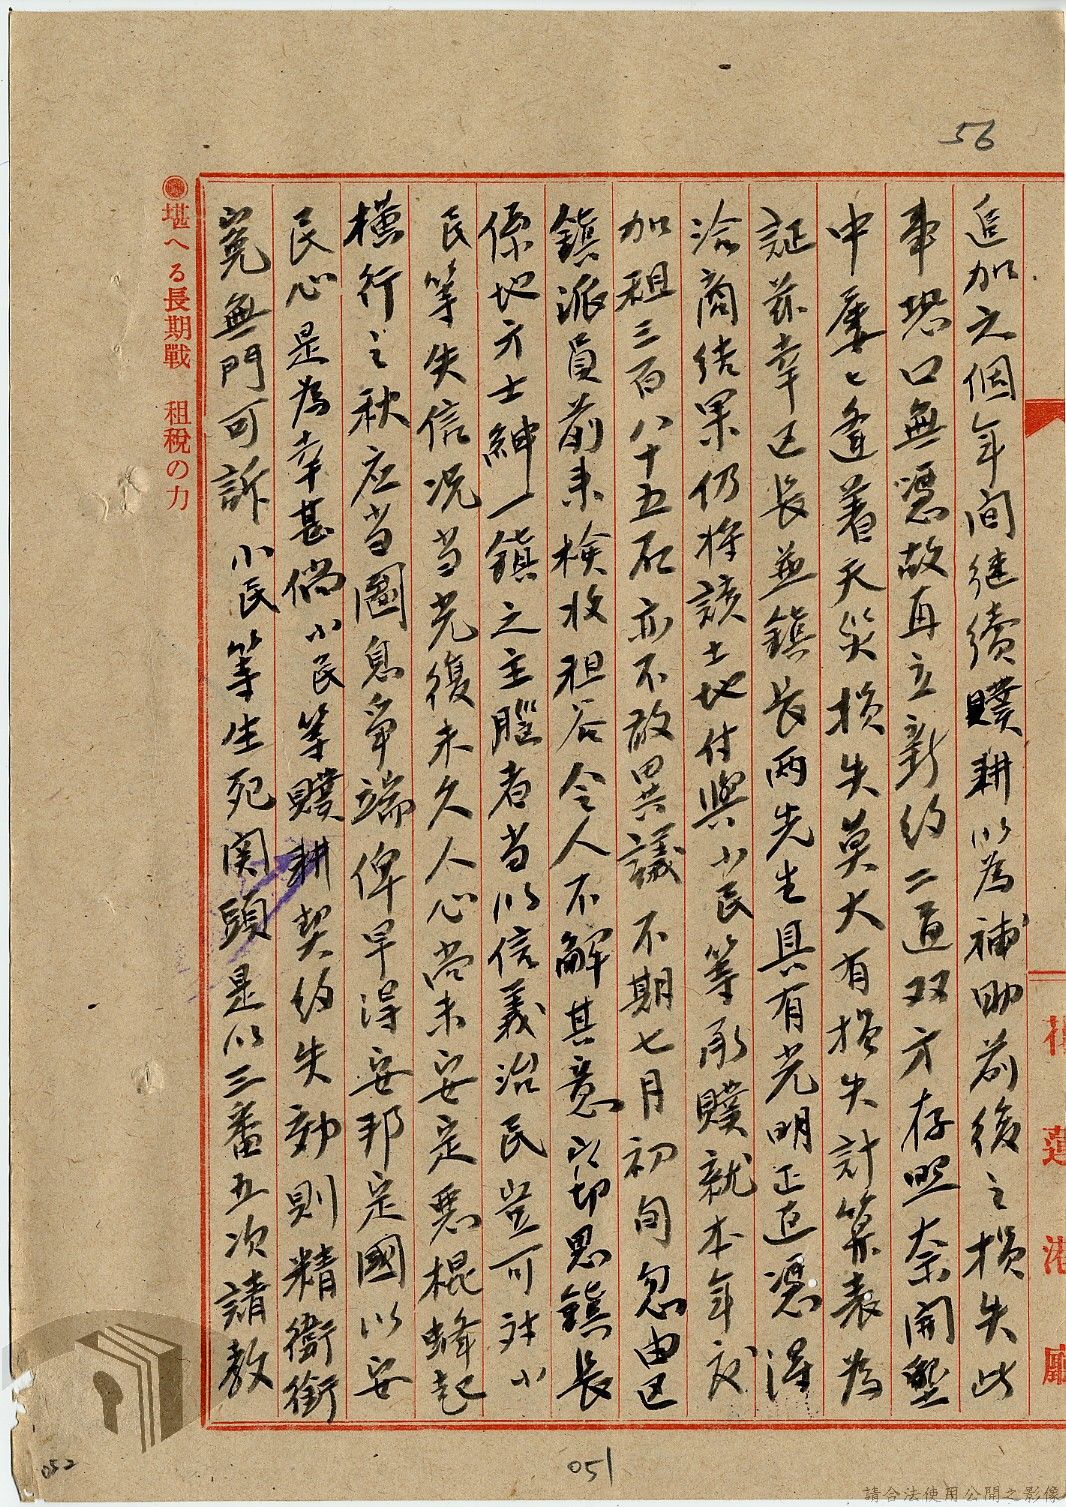 56
追加六個年間继續贌耕以為補助前後之損失此
事恐口無憑故再立新約二通双方存照奈開墾
中屢々逢着天災損失莫大有損失計算表為
証茲幸区長並鎮長两先生具有光明正直憑得
洽商结果仍将該土地付與小民等承贌就本年度
加租三百八十五石亦不敢異議不期七月初旬忽由区
鎮派員前来檢收租谷令人不解其意以切思鎮長
係地方士紳一鎮之主腦者当以信義治民豈可对小
民等失信况当光復未久人心尚未安定惡棍蜂起
横行之秋应当圖息争端俾早得安邦定國以安
民心是為幸甚倘小民等贌耕契约失効則精衛銜
冤無門可訴小民等生死関頭是以三番五次請教
花蓮港廳
堪へる長期戰　租税の力
051
052
請合法使用公開之影像